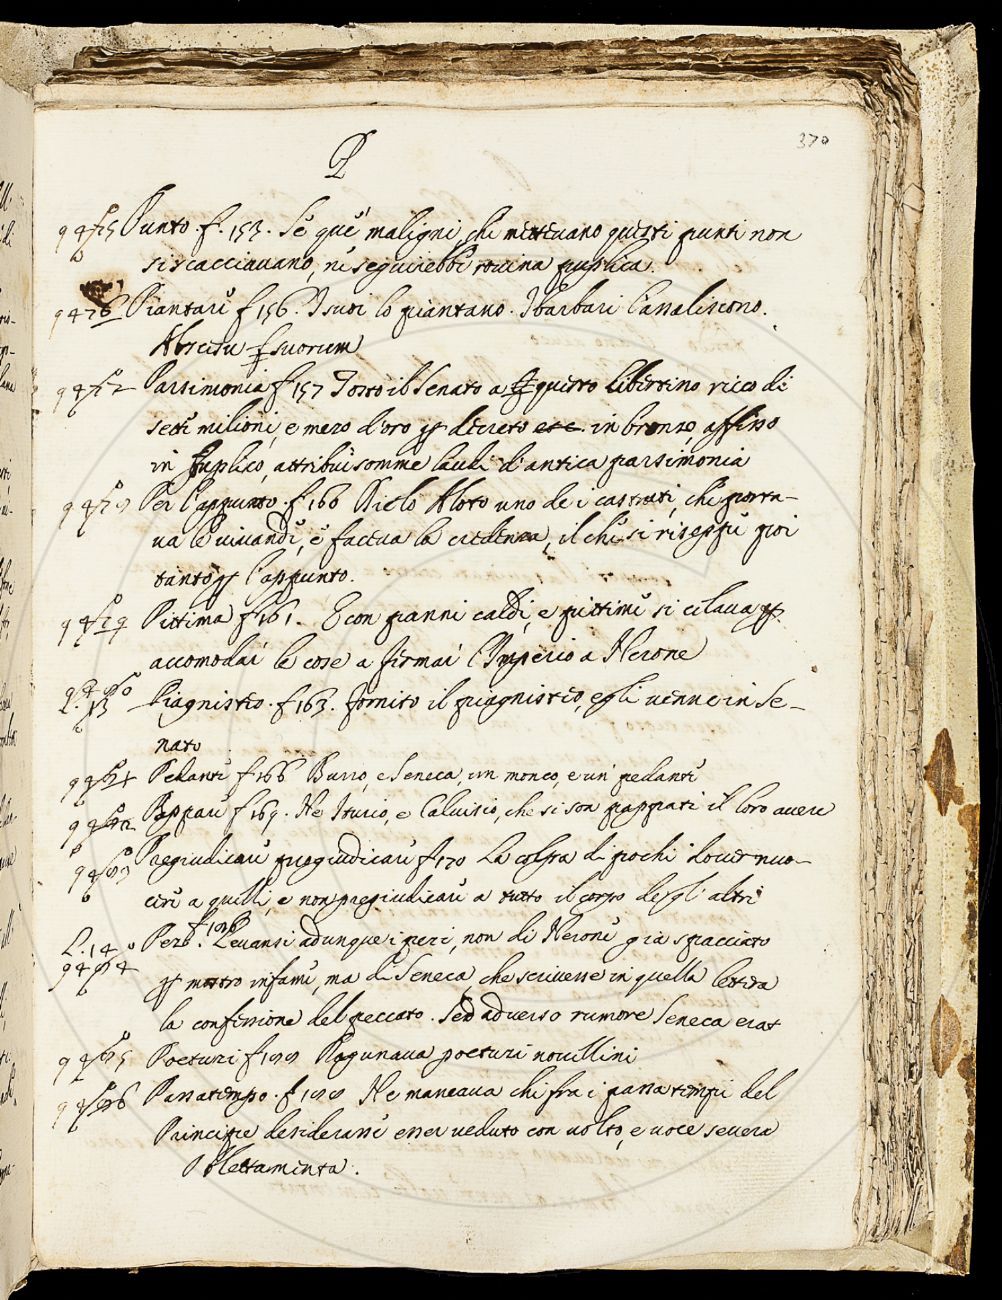 370
P
Punto. f. 153. Se que' maligni, che mettevano questi punti non
si scacciavano, ne seguirebbe rovina publica.
Piantare f 156. I suoi lo piantano. I barbari l'assaliscono.
Abscessu suorum
Parsimonia f 157 Tosto il Senato a questo libertino ricco di
sette milioni, e mezo d'oro p decreto in bronzo, affisso
in publico, attribuì somme laudi d'antica parsimonia
Per l'appunto. f. 166 Aloto uno de i castrati, che porta-
va le vivande, e faceva la credenza, il che si riseppe poi
tanto p l'appunto.
Pittima f 161. E con panni caldi, e pittime si celava p
accomodar le cose a firmar l'Imperio a Nerone
L. 13
Piagnisteo. f 163. fornito il piagnisteo, egli venne in Se-
nato
Pedante f 166 Burro, e Seneca, un monco, e un pedante
Pappare f 169. Ne Iturio, e Calvisio, che si son pappati il loro avere
Pregiudicare pregiudicare f 170 La colpa di pochi dover nuo-
cere a quelli, e non pregiudicare a tutto il corpo degli altri
L. 14
Pero. Levansi adunque i peri, non di Nerone gia spacciato
p mostro infame, ma di Seneca, che scrivesse in quella lettera
la confessione del peccato. Sed adverso rumore Seneca erat
Poeturi f Ragunava poeturi novellini
Passatempo. f Ne mancava chi fra i passatempi del
Principe desiderasse esser veduto con volto, e voce severa
Oblettaminta.